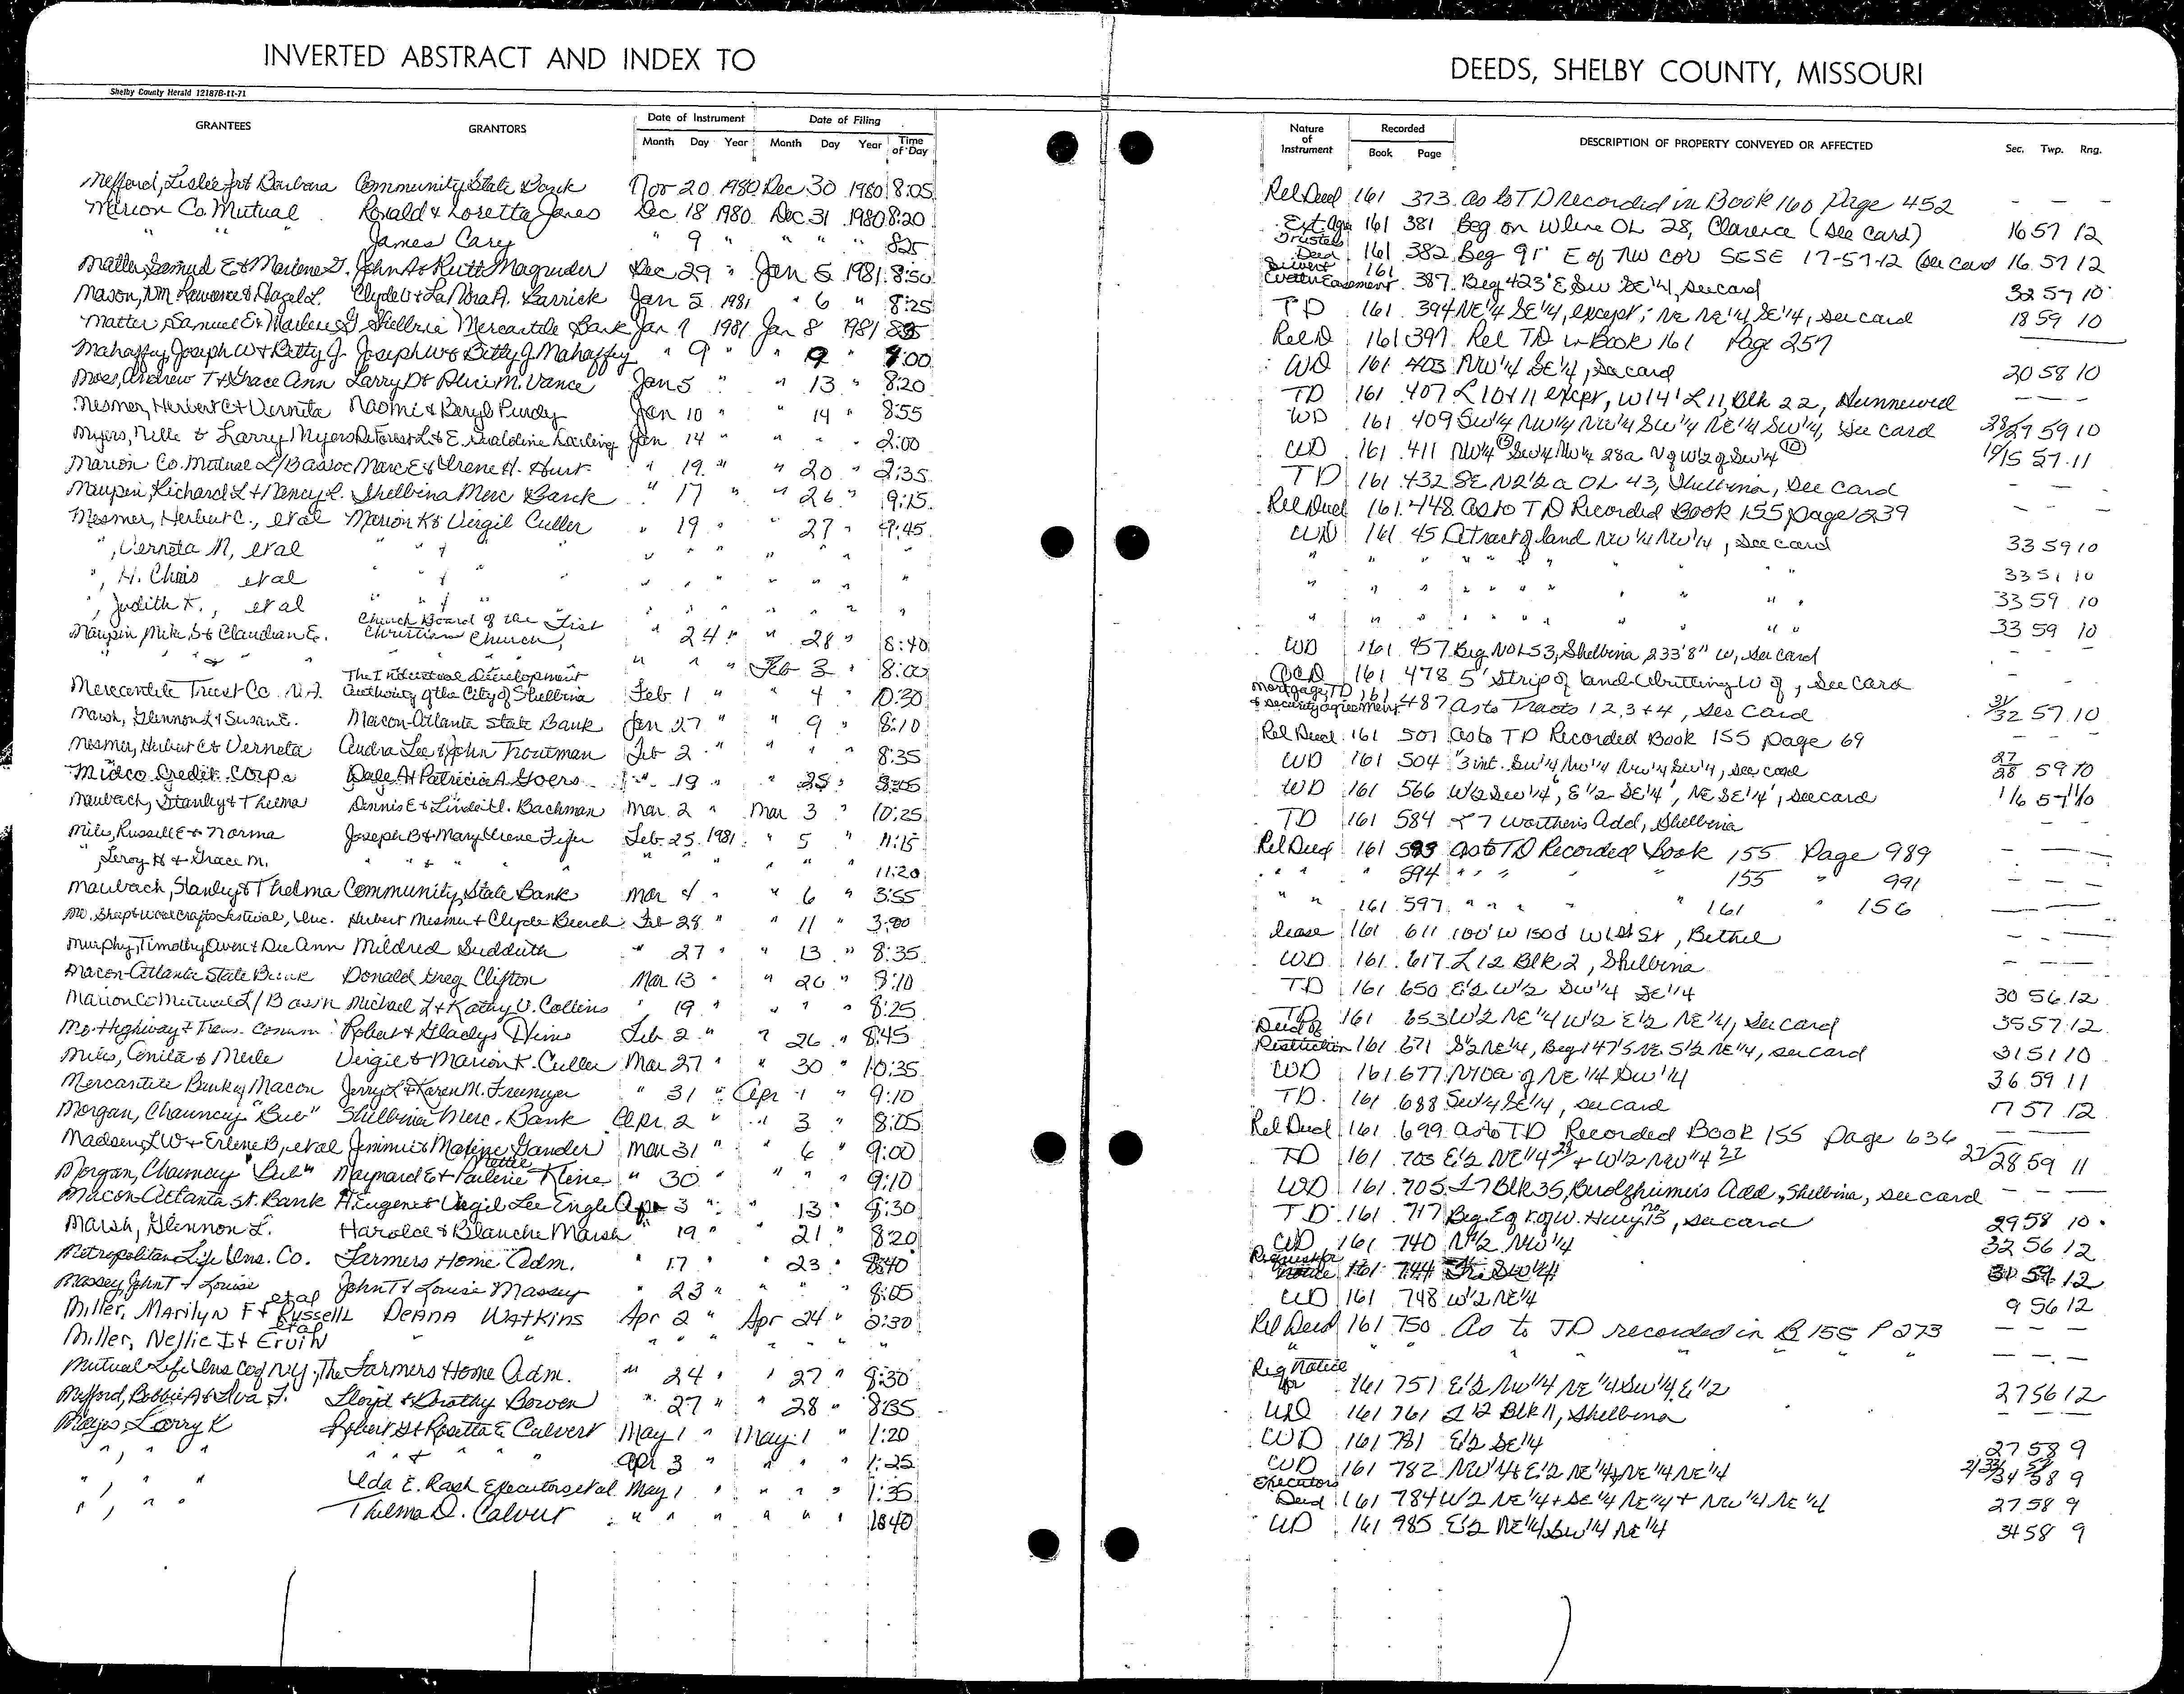 INVERTED ABSTRACT AND INDEX TO
Shelby County Herald 12187B-11-71
GRANTEES GRANTORS Date of Instrument Date of Filing
Month Day Year Month Day Year Time of Day
Mefford, Leslie Jr & Barbara Community State Bank Nov 20 1980 Dec 30 1980 8:05
Marion Co. Mutual Ronald & Loretta Jones Dec 18 1980 Dec 31 1980 8:20
" " " James Cary " 9 " " " " 825
Matter, Samuel E & Marlene G. John A & Ruth Magruder Dec 29 " Jan 5 1981 8:50
Mason, Wm Lawrence & Hazel L. Clyde V & LaNora A. Barrick Jan 5 1981 " 6 " 8:25
Matter, Samuel E & Marlene G Shelbina Mercantile Bank Jan 7 1981 Jan 8 1981
Mahaffy, Joseph W & Betty J. Joseph W & Betty J. Mahaffy " 9 " " 9 " :00
Moes, Andrew T & Grace Ann Larry D & Alice M. Vance Jan 5 " " 13 " 8:20
Mesmer, Herbert C & Verneta Naomi & Beryl Purdy Jan 10 " " 14 " 8:55
Myers, Nelle & Larry Myers DeForest L & E. Gualdine Jan 14 " " " " 2:00
Marion Co. Mutual L/B assoc Marc E & Irene H. Hurt " 19 " " 20 " 2:35
Maupin, Richard L & Nancy L. Shelbina Merc Bank " 17 " " 26 " 9:15
Mesmer, Herbert C., et al Marion K & Virgil Culler " 19 " " 27 " 9:45
", Verneta M, et al " & " " " " " " " "
", H. Chris et al " & " " " " " " " "
", Judith K., et al " & " " " " " " " "
Maupin Mike S & Claudian E. Church Board of the First Christian Church, " 24 " " 28 " 8:40
" " & " " " " Feb 3 " 8:00
Mercantile Trust Co. N.A. The Industrial Development Authority of the City of Shelbina Feb 1 " " 4 " 10:30
Marsh, Glennon L & Susan E. Macon-Atlanta State Bank Jan 27 " " 9 " 8:10
Mesmer, Herbert C & Verneta Andra Lee & John Troutman Feb 2 " " " " 8:35
Midco Credit Corp. Dale A & Patricia A Goers " 19 " " 25 " 8:05
Maubach, Stanley & Thelma Dennis E & Linda L. Bachman Mar. 2 " Mar 3 " 10:25
Miles, Russell E & Norma Joseph B & Mary Irene Fifer Feb. 25 1981 " 5 " 11:15
" Leroy H & Grace M. " " & " " " " " " " 11:20
Maubach, Stanley & Thelma Community State Bank Mar 4 " " 6 " 3:55
Mo. Sheep & Wool Crafts Festival, Inc. Herbert Mesmer & Clyde Burch Feb 28 " " 11 " 3:00
Murphy, Timothy Owen & Dee Ann Mildred Sudduth " 27 " " 13 " 8:35
Macon-Atlanta State Bank Donald Greg Clifton Mar 13 " " 20 " 8:10
Marion Co Mutual L/B assn Michael L & Kathy V. Collins " 19 " " " " 8:25
Mo. Highway & Tran. Comm. Robert & Gladys Feb. 2 " " 26 " 8:45
Miles, Anita & Merle Virgil & Marion K. Culler Mar 27 " " 30 " 10:35
Mercantile Bank of Macon Jerry L & Karen M. Freemyer " 31 " Apr 1 " 9:10
Morgan, Chauncey "Bub" Shelbina Merc. Bank Apr. 2 " " 3 " 8:05
Madsen, L W & Erlene B, et al Jimmie & Maxine Gander Mar 31 " " 6 " 9:00
Morgan, Chauncey "Bub" Maynard E & Paulene Nettie Kline " 30 " " " " 9:10
Macon-Atlanta St. Bank H. Eugene & Virgil Lee Engle Apr 3 " " 13 " 8:30
Marsh, Glennon L. Harold & Blanche Marsh " 19 " " 21 " 8:20
Metropolitan Life Ins. Co. Farmers Home Adm. " 17 " " 23 " 8:40
Massey, John T & Louise John T & Louise Massey " 23 " " " " 8:05
Miller, Marilyn F & Russell et al Deana Watkins Apr 2 " Apr 24 " 2:30
Miller, Nellie I & Ervin et al " " " " " " " "
Mutual Life Ins Co of NY, The Farmers Home Adm. " 24 " " 27 " 8:30
Mefford, Bobbie A & Iva F. Lloyd & Dorothy Bowen " 27 " " 28 " 8:35
Mayes Larry K Robert G & Rosetta E Calvert May 1 " May 1 " 1:20
" , " " " " & " " Apr 3 " " " " 1:25
" , " " Ida E. Rash Executors et al May 1 " " " " 1:35
" , " " Thelma D. Calvert " " " " " " 1:40
DEEDS, SHELBY COUNTY, MISSOURI
Nature of Instrument Recorded DESCRIPTION OF PROPERTY CONVEYED OR AFFECTED Sec. Twp. Rng.
Book Page
Rel Deed 161 373 as to TD Recorded in Book 160 Page 452 — — —
Ext. Agr 161 381 Beg on W line OL 28, Clarence (See Card) 16 57 12
Trustees Deed 161 382 Beg 91' E of NW cor SESE 17-57-12 (see card 16 57 12
Sewer & Water Easement 161 387 Beg 423' E SW SE 1/4, see card 32 57 10
TD 161 394 NE 1/4 SE 1/4, except; NE NE 1/4 SE 1/4, see card 18 59 10
Rel D 161 397 Rel TD in Book 161 Page 257
WD 161 403 NW 1/4 SE 1/4, see card 20 58 10
TD 161 407 L 10 & 11 except, W 14' L 11, Blk 22, Hunnewell — — —
WD 161 409 SW 1/4 NW 1/4 NW 1/4 SW 1/4 NE 1/4 SW 1/4, see card 28/29 59 10
WD 161 411 NW 1/4 SW 1/4 NW 1/4 28a N of W 1/2 of SW 1/4 57 11
TD 161 432 SE N 2 1/2 a OL 43, Shelbina, see card — — —
Rel Deed 161 448 as to TD Recorded Book 155 page 239 — — —
WD 161 45 A tract of land NW 1/4 NW 1/4, see card 33 59 10
" " " " " " " " " 33 51 10
" " " " " " " " " 33 59 10
" " " " " " " " " 33 59 10
WD 161 457 Beg NOL 53, Shelbina 233'8" W, see card — — —
QCD 161 478 5' strip of land abutting W of, see card — — —
Mortgage, TD & security agreement 161 487 as to Tracts 1 2, 3 & 4, see card 31/32 57 10
Rel Deed 161 501 as to TD Recorded Book 155 page 69 — — —
WD 161 504 1/3 int. SW 1/4 NW 1/4 NW 1/4 SW 1/4, see card 27/28 59 10
WD 161 566 W 1/2 SW 1/4, E 1/2 SE 1/4, NE SE 1/4, see card 1/6 57
TD 161 584 L 7 Worthens Add, Shelbina — —
Rel Deed 161 593 as to TD Recorded Book 155 Page 989 — — —
" " " 594 " " " " 155 " 991 — — —
" " 161 597 " " " " " 161 " 156 — — —
Lease 161 611 100' W 150' d W 1st St, Bethel — — —
WD 161 617 L 12 Blk 2, Shelbina — — —
TD 161 650 E 1/2 W 1/2 SW 1/4 SE 1/4 30 56 12
TD 161 653 W 1/2 NE 1/4 W 1/2 E 1/2 NE 1/4, see card 35 57 12
Deed of Restriction 161 671 S 1/2 NE 1/4, Beg 147' S NE S 1/2 NE 1/4, see card 31 51 10
WD 161 677 N 10a of NE 1/4 SW 1/4 36 59 11
TD 161 688 SW 1/4 SE 1/4, see card 17 57 12
Rel Deed 161 699 as to TD Recorded Book 155 page 636
TD 161 703 E 1/2 NE 1/4 28 + W 1/2 NW 1/4 27 27/28 59 11
WD 161 705 L 7 Blk 35, Birolzhimer's Add., Shelbina, see card — — —
TD 161 717 Beg. E of r of W. Hwy no 15, see card 29 58 10
WD 161 740 N 1/2 NW 1/4 32 56 12
Request for notice 161 744 SW 1/4 31 59 12
WD 161 748 W 1/2 NE 1/4 9 56 12
Rel Deed 161 750 As to TD recorded in B 155 P 273 — — —
" " " " " " " " — — —
Req Notice for 161 751 E 1/2 NW 1/4 NE 1/4 SW 1/4 E 1/2 27 56 12
WD 161 761 L 12 Blk 11, Shelbina — — —
WD 161 781 E 1/2 SE 1/4 27 58 9
WD 161 782 NW 1/4 & E 1/2 NE 1/4 & NE 1/4 NE 1/4 58 9
Executors Deed 161 784 W 1/2 NE 1/4 + SE 1/4 NE 1/4 + NW 1/4 NE 1/4 27 58 9
WD 161 985 E 1/2 NE 1/4 SW 1/4 NE 1/4 34 58 9